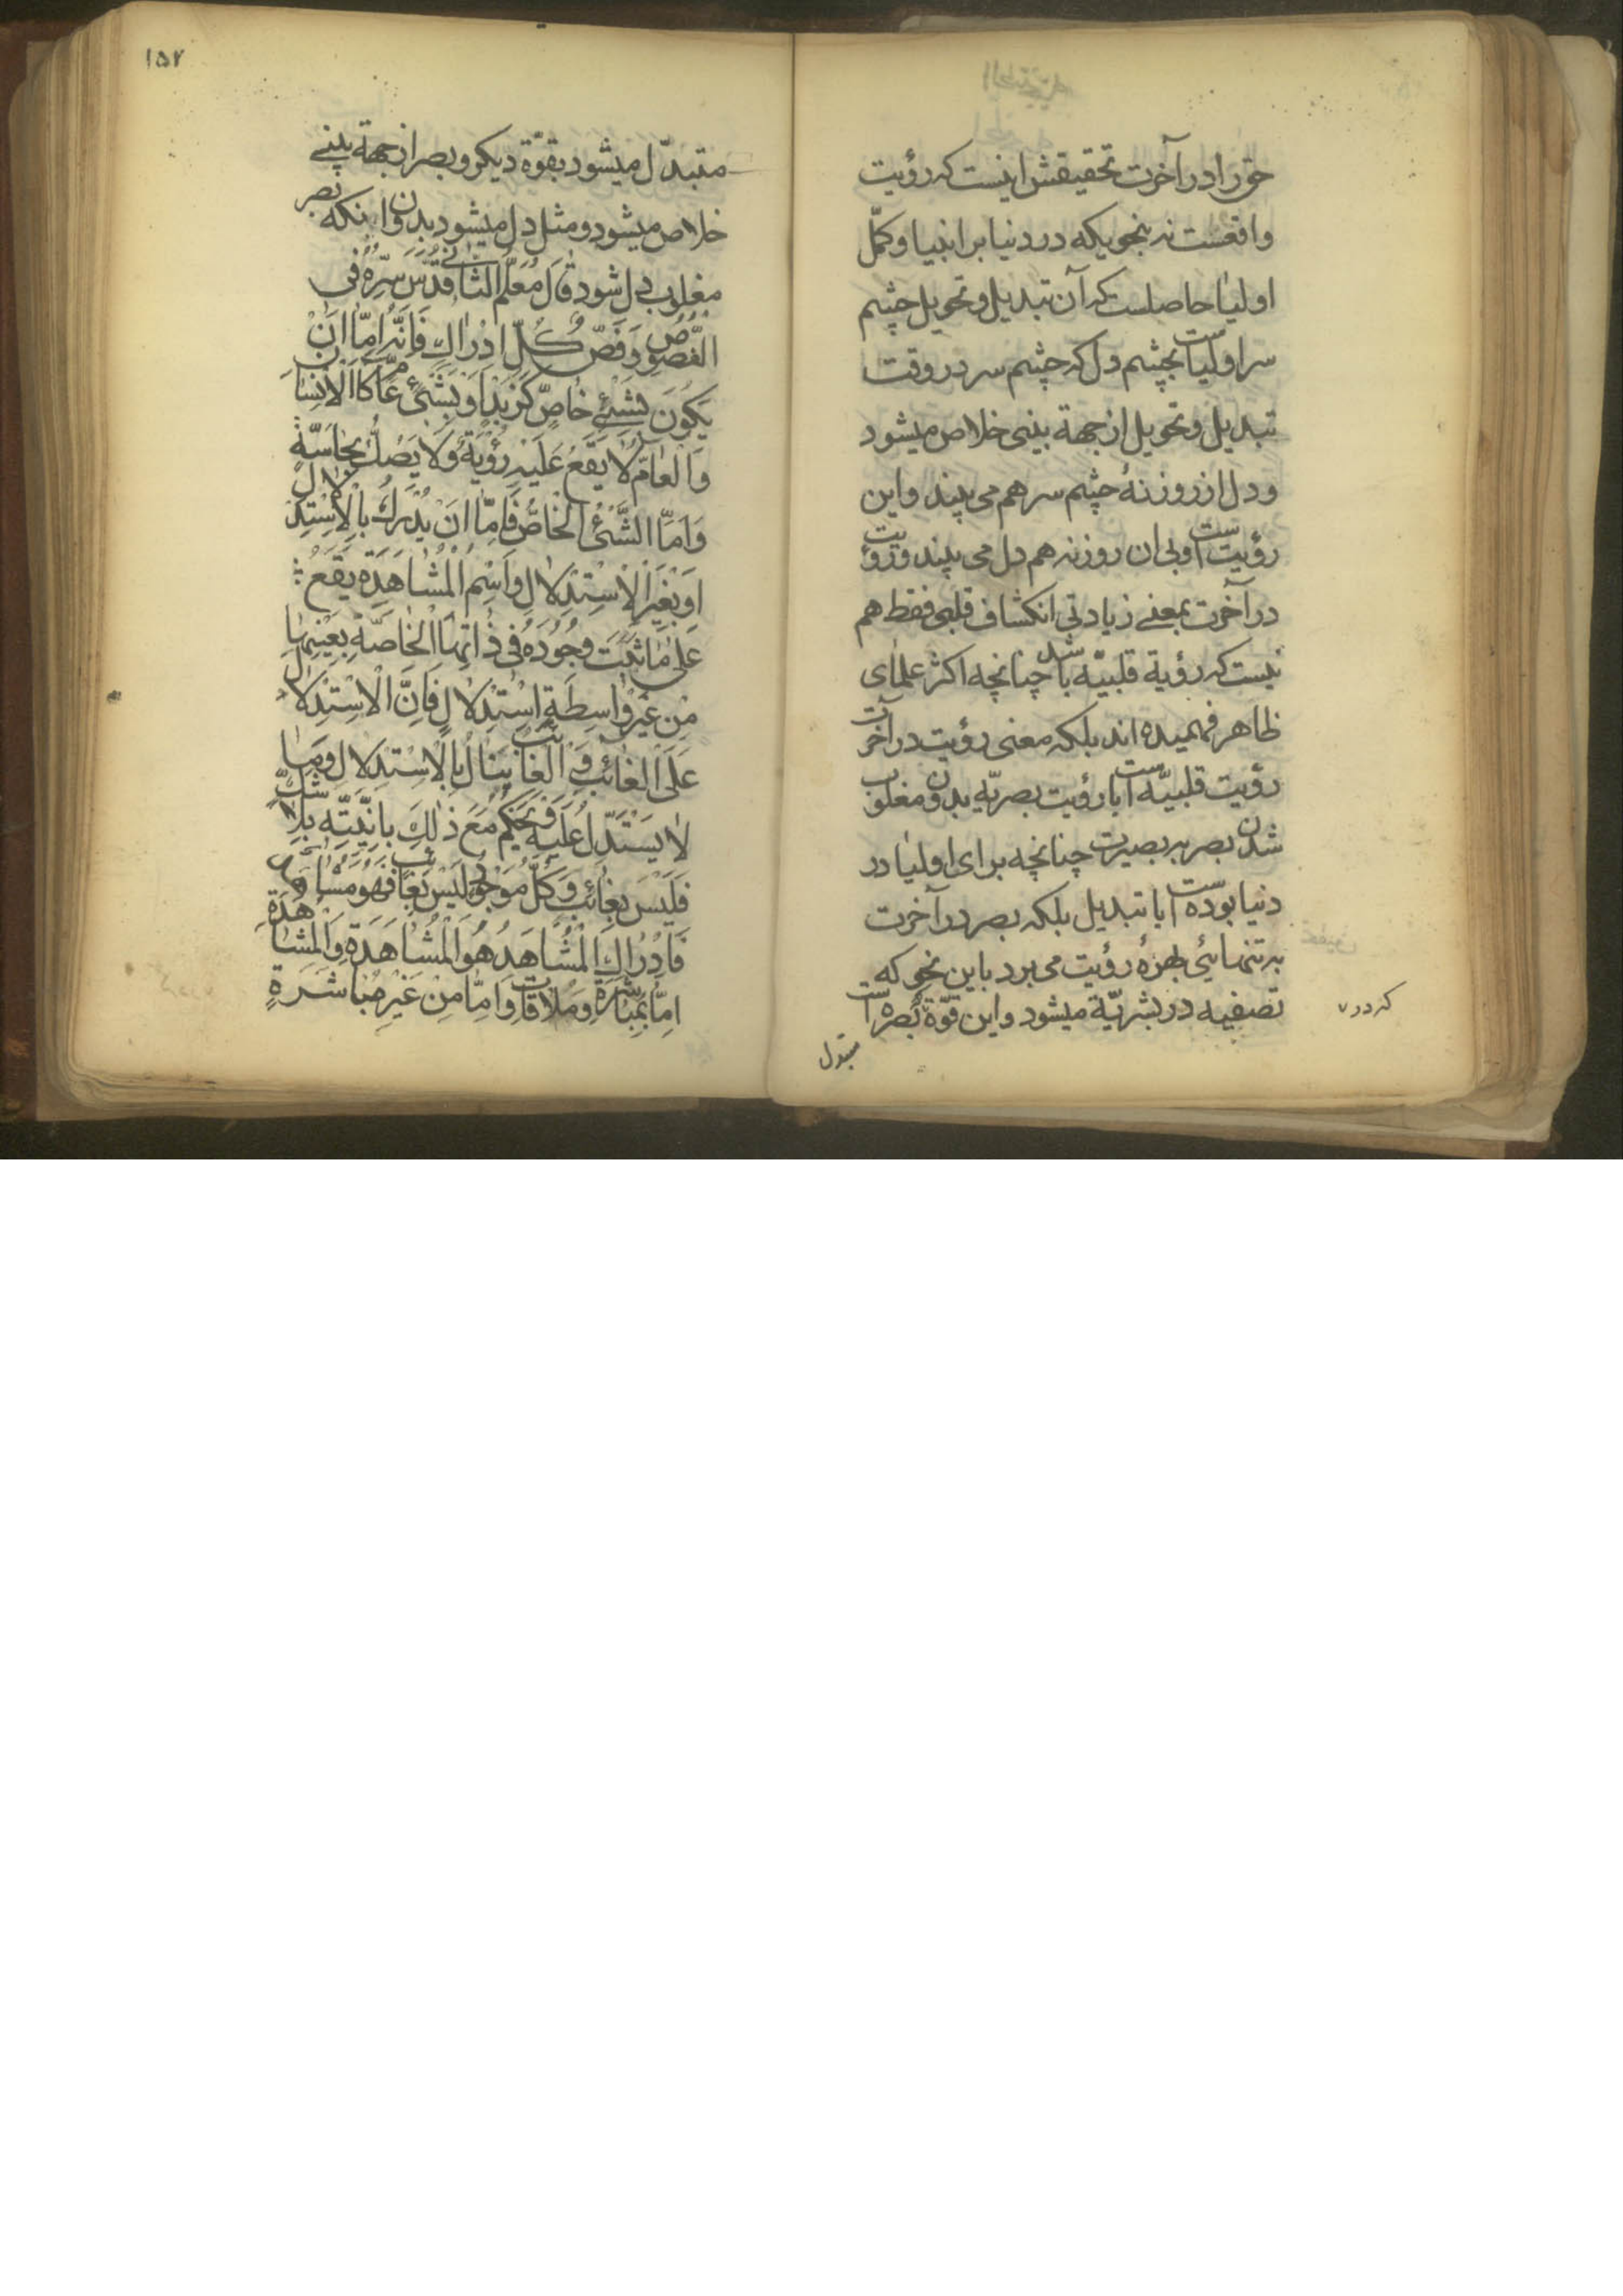 حق را در آخرت تحقیقش اینست که رؤیت
واقعست نه بنحویکه در دنیا بر انبیا و کمّل
اولیا حاصلست که آن تبدیل و تحویل چشم
سر اولیاست بچشم دل که چشم سر در وقت
تبدیل و تحویل از جهة بینی خلاص میشود
و دل از روزنهٔ چشم سر هم می بیند و این
رؤیت است و بی ان روزنه هم دل می بیند و رؤیت
در آخرت بمعنے زیادتی انکشاف قلبی فقط هم
نیست که رؤیة قلبیّه باشد چنانچه اکثر علمای
ظاهر فهمیده اند بلکه معنی رؤیت در آخرت
رؤیت قلبیّه است با رؤیت بصریّه بدون مغلوب
شدن بصر بر بصیرت چنانچه برای اولیا در
دنیا بوده است با تبدیل بلکه بصر در آخرت
به تنهائی بهرهٔ رؤیت می برد باین نحو که
تصفیه در بشریّة میشود و این قوّة بصره است
که در
مبتدل
۱۵۲
متبدّل میشود بقوّة دیکر و بصر از جهة بینے
خلاص میشود و مثل دل میشود بدون اینکه بصر
مغلوب دل شود قَالَ مُعَلِّم الثّانی قُدِّسَ سِرُّهُ فی
الفُصُوص وَفَصّ كُلّ اِدْرٰاكٍ فَاِنَّهُ اِمّا اَنْ
يَكُونَ بِشَيْءٍ خٰاصٍّ كَزَيْدٍ اَوْ بِشَيْءٍ عٰامٍّ كَالْاِنْسٰانِ
وَالْعٰامّ لَا يَقَعُ عَلَيْهِ رُؤْيَةٌ وَلَا يَصُكُّ بِحٰاسَّةٍ
وَاَمّا الشَّيْءُ الْخٰاصُّ فَاِمّا اَنْ يُدْرَكَ بِالْاِسْتِدْلَالِ
اَوْ بِغَيْرِ الْاِسْتِدْلَالِ وَاسْمِ الْمُشٰاهَدَةِ يَقَعُ
عَلٰى مٰا ثَبَتَ وُجُودُهُ فى ذٰاتِهَا الْخٰاصَّةِ بِعَيْنِهٰا
مِنْ غَيْرِ وٰاسِطَةِ اسْتِدْلَالٍ فَاِنَّ الْاِسْتِدْلَالَ
عَلَى الْغٰائِبِ وَالْغٰائِبُ يُنٰالُ بِالْاِسْتِدْلَالِ وَمٰا
لٰا يُسْتَدَلُّ عَلَيْهِ فَحُكِمَ مَعَ ذٰلِكَ بِاِنِّيَّتِه بِلَا شَكٍّ
فَلَيْسَ بِغٰائِبٍ وَكُلُّ مَوْجُودٍ لَيْسَ بِغٰائِبٍ فَهُوَ مُشٰاهَدٌ
فَاِدْرٰاكُ الْمُشٰاهَدِ هُوَ الْمُشٰاهَدَة وَالْمُشٰاهَدَةُ
اِمّا بِمُبٰاشَرَةٍ وَمُلٰاقٰاتٍ وَاِمّا مِنْ غَيْرِ مُبٰاشَرَةٍ